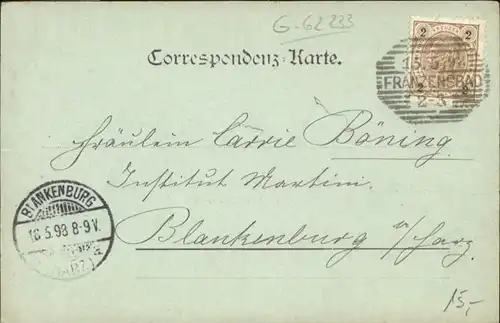 G-62223
2 KREUZER 2
Correspondenz-Karte.
15.5.
FRANZENSBAD
2-3
Fräulein Carrie Böning.
Institut Martini.
Blankenburg a/Harz.
BLANKENBURG
16.5.98 8-9V.
(HARZ)
15,-